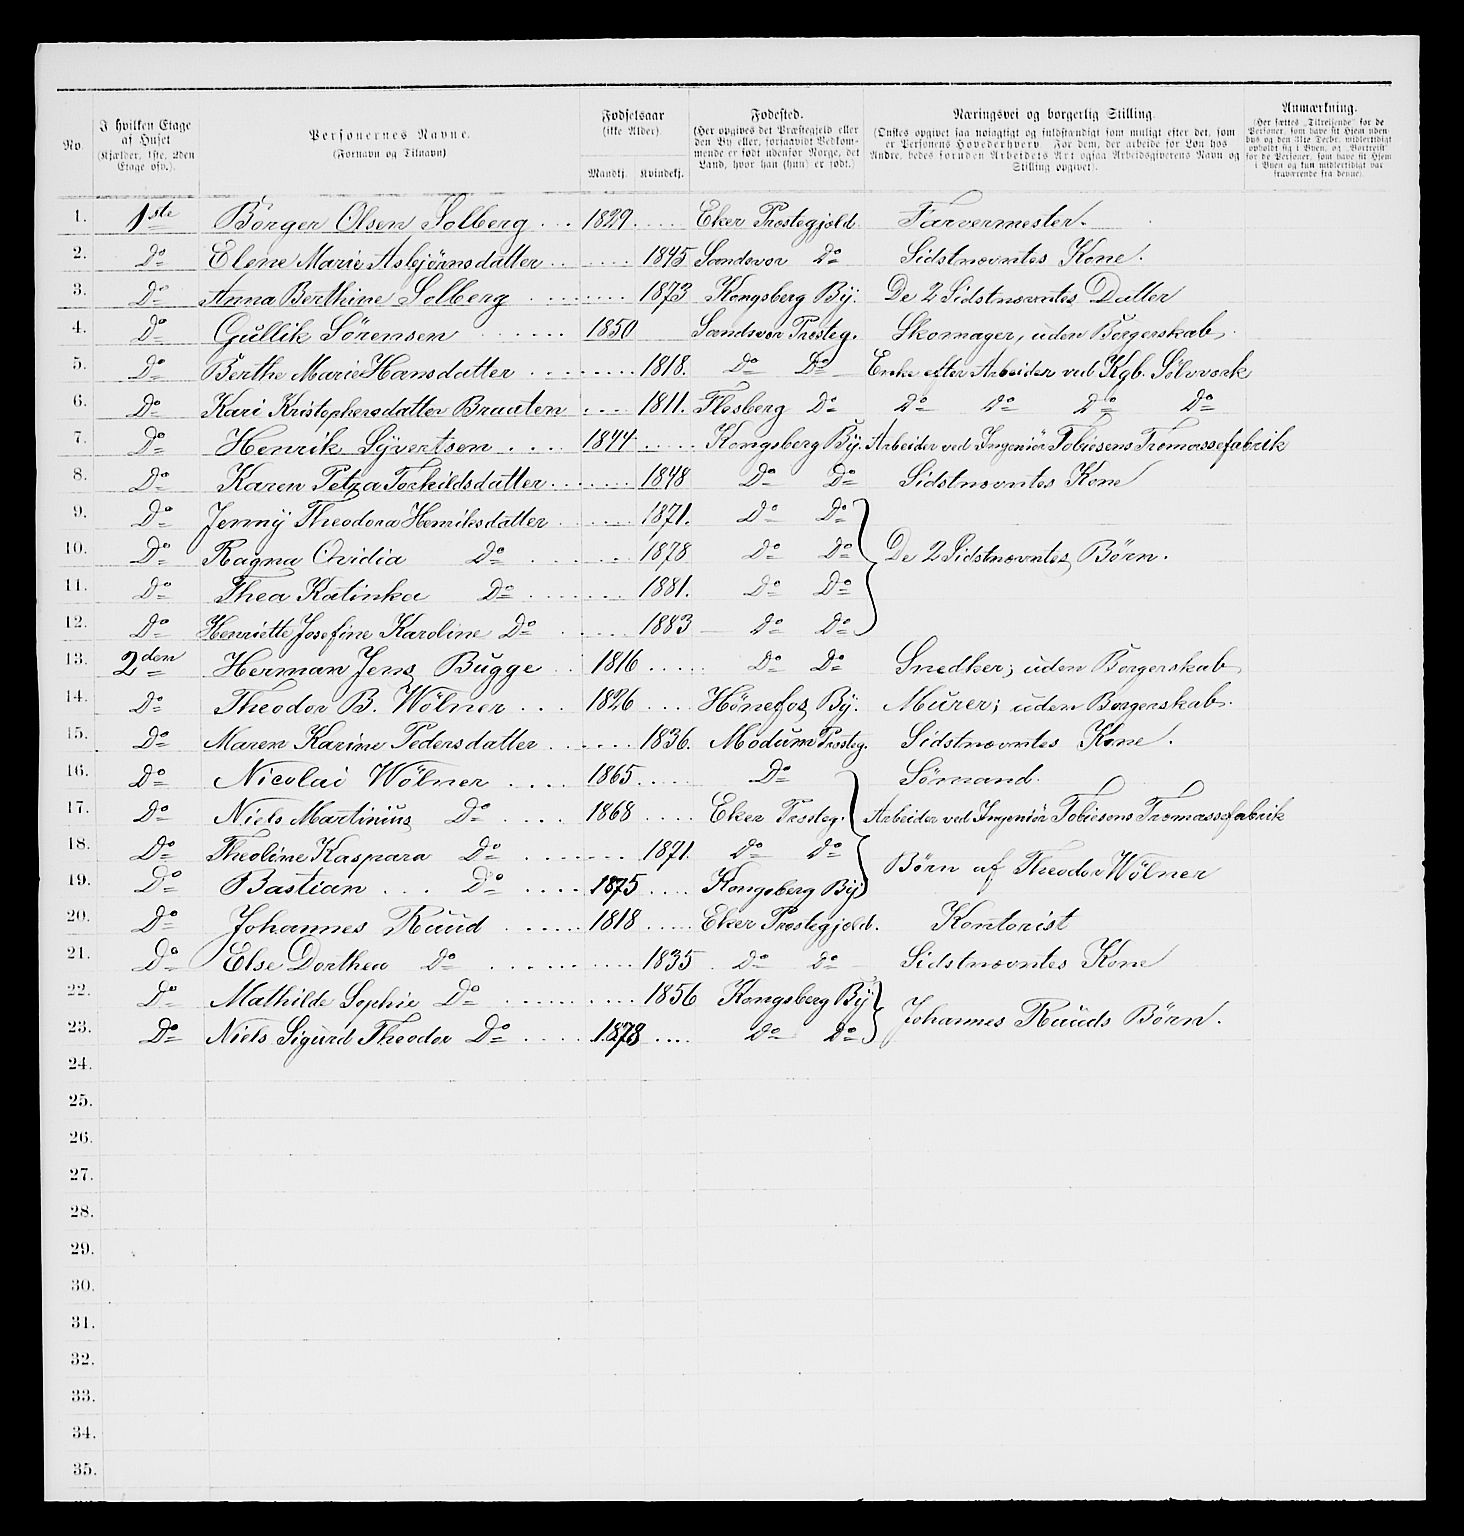 No. | I hvilken Etage af Huset (Kjælder, 1ste, 2den Etage osv.). | Personernes Navne. (Fornavn og Tilnavn) | Fødselsaar (ikke Alder). Mandkj. | Kvindekj. | Fødested. (Her opgives det Præstegjeld eller den By eller, forsaavidt Vedkommende er født udenfor Norge, det Land, hvor han (hun) er født.) | Næringsvei og borgerlig Stilling. (Ønskes opgivet saa nøiagtigt og fuldstændigt som muligt efter det, som er Personens Hovederhverv. For dem, der arbeide for Løn hos Andre, bedes foruden Arbeidets Art ogsaa Arbeidsgiverens Navn og Stilling opgivet). | Anmærkning. (Her sættes „Tilreisende" for de Personer, som have sit Hjem udenbys og den 31te Decbr. midlertidigt opholdt sig i Byen, og „Bortreist" for de Personer, som have sit Hjem i Byen og kun midlertidigt var fraværende fra denne).
1. 1ste Börger Olsen Solberg 1829 Eker Præstegjeld Farvermester.
2. Do Elene Marie Asbjörnsdatter 1845 Sandsvær Do Sidstnævntes Kone.
3. Do Anna Berthine Solberg 1873 Kongsberg By. De 2 Sidstnævntes Datter
4. Do Gullik Sörensen 1850 Sandsvær Præsteg. Skomager, uden Borgerskab.
5. Do Berthe Marie Hansdatter 1818. Do Do Enke efter Arbeider ved Kgb. Sölvværk
6. Do Kari Kristophersdatter Braaten 1811. Flesberg Do Do Do Do Do
7. Do Henrik Syvertsen 1844 Kongsberg By. Arbeider ved Ingeniör Tobiesens Træmassefabrik
8. Do Karen Petra Torkildsdatter 1848 Do Do Sidstnævntes Kone
9. Do Jenny Theodora Henriksdatter 1871. Do Do
10. Do Ragna Ovidia Do 1878 Do Do De 2 Sidstnævntes Börn.
11. Do Thea Katinka Do 1881. Do Do
12. Do Henriette Josefine Karoline Do 1883 Do Do
13. 2den Herman Jens Bugge 1816 Do Do Snedker; uden Borgerskab
14. Do Theodor B. Wölner 1826 Hönefos By. Murer; uden Borgerskab.
15. Do Maren Karine Pedersdatter 1836. Modum Præsteg. Sidstnævntes Kone.
16. Do Nicolai Wölner 1865 Do Sömand.
17. Do Niels Martinius Do 1868 Eker Præsteg. Arbeider ved Ingeniör Tobiesens Træmassefabrik
18. Do Theoline Kaspara Do 1871. Do Do
Börn af Theodor Wölner
19. Do Bastian Do 1875 Kongsberg By
20. Do Johannes Ruud 1818 Eker Præstegjeld. Kontorist
21. Do Else Dorthea Do 1835 Do Do Sidstnævntes Kone
22. Do Mathilde Sophie Do 1856 Kongsberg By
Johannes Ruuds Börn.
23. Do Niels Sigurd Theodor Do 1878 Do Do
24.
25.
26.
27.
28.
29.
30.
31.
32.
33.
34.
35.